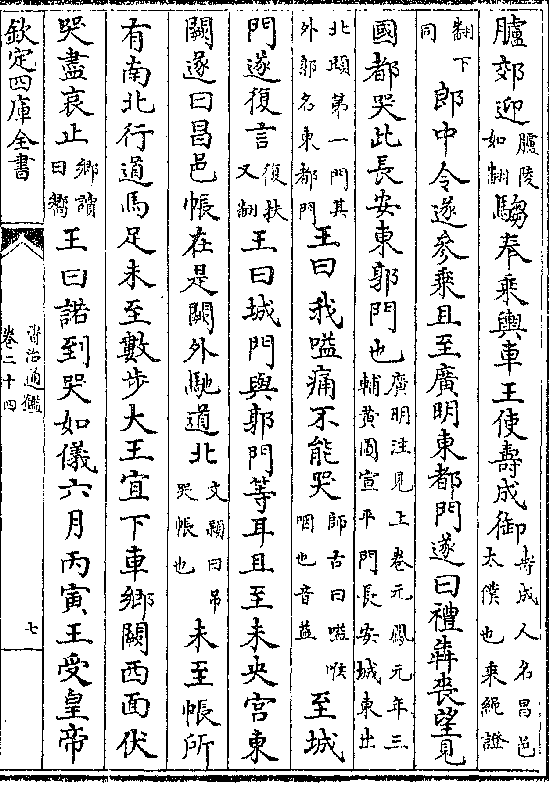 臚郊迎臚陵如翻騶奉乘輿車王使壽成御壽成人名昌邑太僕也乘繩證
翻下同郎中令遂參乘且至廣明東都門遂曰禮犇喪望見
國都哭此長安東郭門也廣明注見上卷元鳳元年三輔黄圖宣平門長安城東出
北頭第一門其外郭名東都門王曰我嗌痛不能哭師古曰嗌喉咽也音益至城
門遂復言復扶又翻王曰城門與郭門等耳且至未央宮東
闕遂曰昌邑帳在是闕外馳道北文頴曰弔哭帳也未至帳所
有南北行道馬足未至數步大王宜下車鄉闕西面伏
哭盡哀止鄉讀曰嚮王曰諾到哭如儀六月丙寅王受皇帝
欽定四庫全書
資治通鑑
卷二十四
七